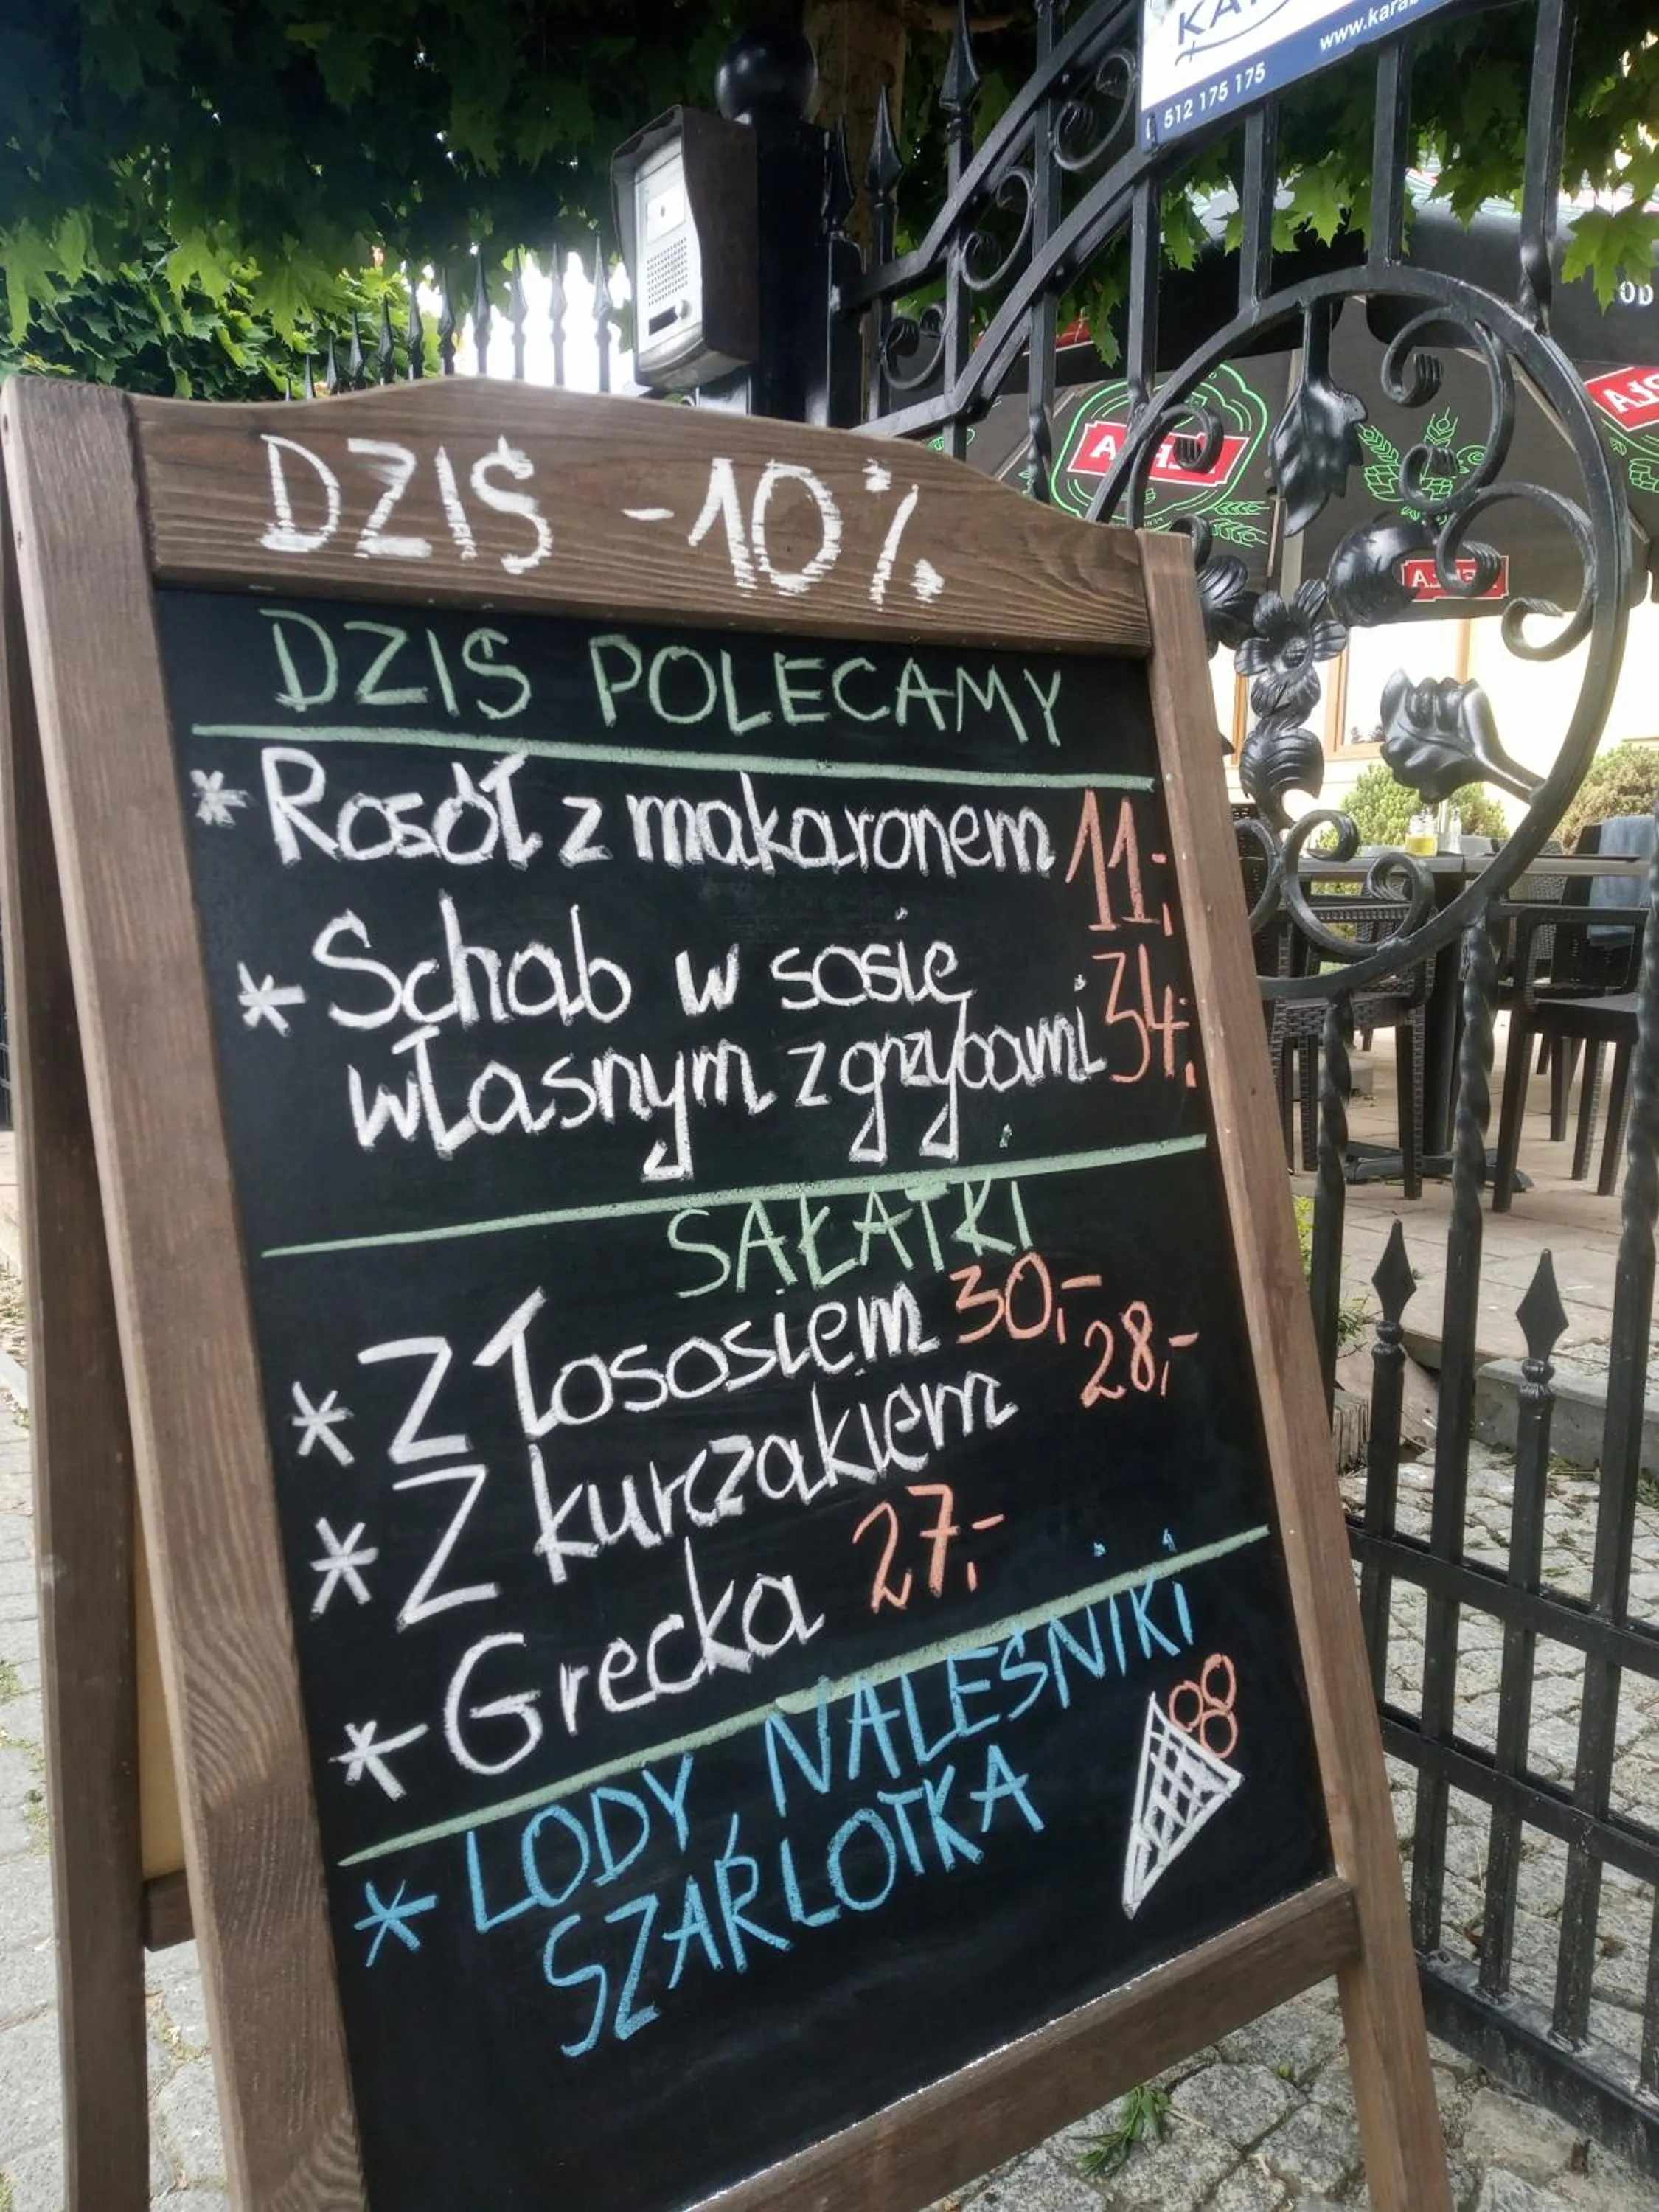 512 175 175
DZIŚ -10%
DZIŚ POLECAMY
* Rosół z makaronem 11,-
* Schab w sosie
własnym z grzybami 34,-
SAŁATKI
* Z łososiem 30,-
* Z kurczakiem 28,-
* Grecka 27,-
* LODY, NALEŚNIKI
SZARLOTKA